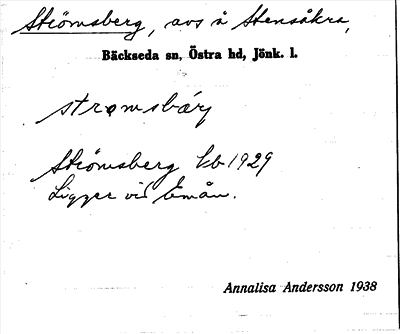 Strömsberg, avs å Stensåkra,
Bäckseda sn, Östra hd, Jönk. l.
strømsbærj
Strömsberg kb 1929
Ligger vid Emån.
Annalisa Andersson 1938